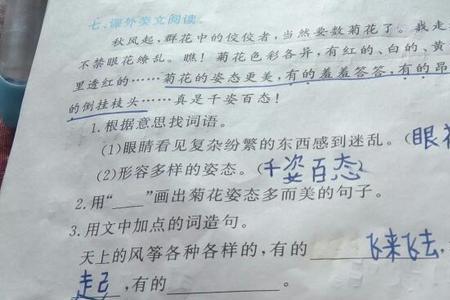 七、课外美文阅读。
秋风起，群花中的佼佼者，当然要数菊花了。我走
不禁眼花缭乱。瞧！菊花色彩各异，有红的、白的、黄
里透红的……菊花的姿态更美，有的羞羞答答，有的昂
的倒挂枝头……真是千姿百态！
1.根据意思找词语。
(1)眼睛看见复杂纷繁的东西感到迷乱。(眼
(2)形容多样的姿态。(千姿百态)
2.用“____”画出菊花姿态多而美的句子。
3.用文中加点的词造句。
天上的风筝各种各样的，有的____飞来飞去，
走起，有的____。